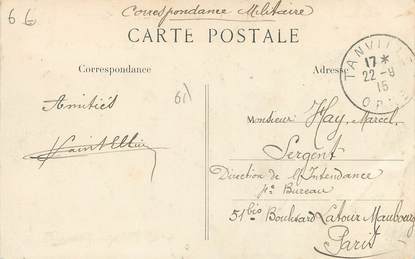 66
Correspondance Militaire
CARTE POSTALE
Correspondance
Adresse
TANVILLE
17*
22-9
15
ORNE
Amitiés
61
Monsieur Hay, Marcel
Sergent
Direction de l'Intendance
Bureau
51bis Boulevard Latour Maubourg
Paris